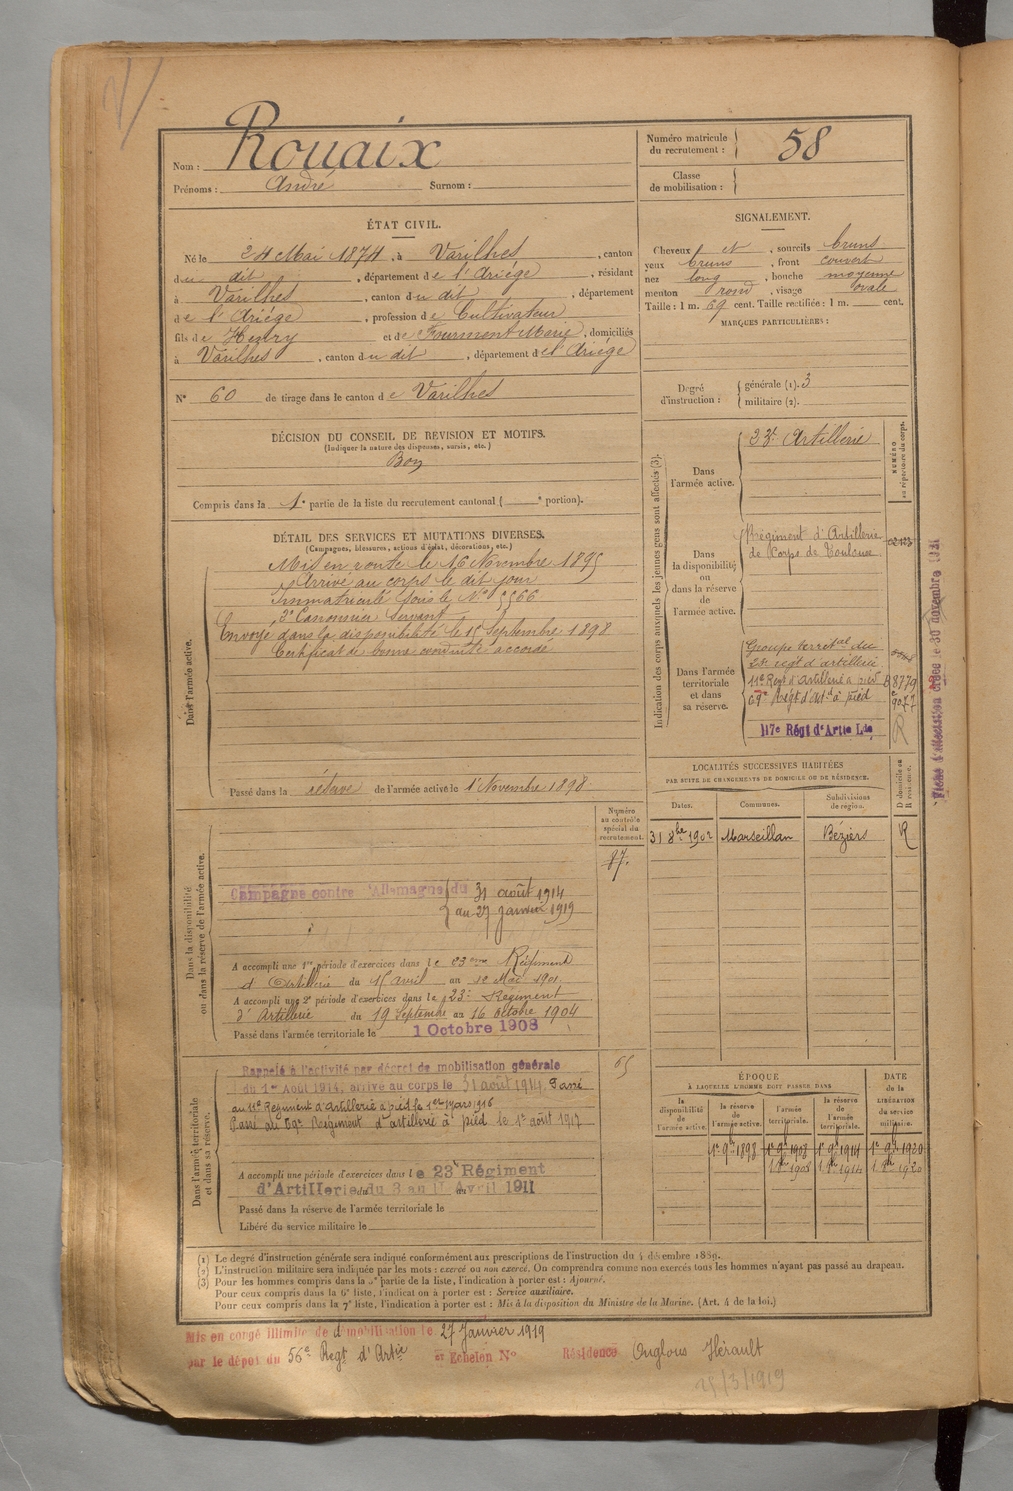 Nom : Rouaix
Prénoms : André Surnom :
Numéro matricule du recrutement : 58
Classe de mobilisation :
ÉTAT CIVIL.
Né le 24 Mai 1874, à Varilhes, canton
du dit, département de l'Ariège, résidant
à Varilhes, canton du dit, département
de l'Ariège, profession de Cultivateur
fils de Henry et de Fourment Marie, domiciliés
à Varilhes, canton du dit, département de l'Ariège
N° 60 de tirage dans le canton de Varilhes
SIGNALEMENT.
Cheveux et, sourcils bruns
yeux bruns, front couvert
nez long, bouche moyenne
menton rond, visage ovale
Taille : 1 m. 69 cent. Taille rectifiée : 1 m. cent.
MARQUES PARTICULIÈRES :
Degré d'instruction : générale (1). 3
militaire (2).
DÉCISION DU CONSEIL DE RÉVISION ET MOTIFS.
(Indiquer la nature des dispenses, sursis, etc.)
Bon
Compris dans la 1e partie de la liste du recrutement cantonal ( e portion).
DÉTAIL DES SERVICES ET MUTATIONS DIVERSES.
(Campagnes, blessures, actions d'éclat, décorations, etc.)
Dans l'armée active.
Mis en route le 16 Novembre 1895
Arrivé au corps le dit jour
Immatriculé sous le N° 5566
2e Canonnier Servant
Envoyé dans la disponibilité le 15 Septembre 1898
Certificat de bonne conduite accordé
Passé dans la réserve de l'armée active le 1er Novembre 1898
Indication des corps auxquels les jeunes gens sont affectés (3).
NUMÉRO au répertoire du corps.
Dans l'armée active.
23e Artillerie
Dans la disponibilité ou dans la réserve de l'armée active.
Régiment d'Artillerie
de Corps de Toulouse
Dans l'armée territoriale et dans sa réserve.
Groupe territal du
23e régt d'artillerie
11e Régt d'Artillerie à pied R 8779
69e Régt d'art à pied 9077
117e Régt d'Artie Lde R
Fiche d'affectation créée le 30 novembre
LOCALITÉS SUCCESSIVES HABITÉES
PAR SUITE DE CHANGEMENTS DE DOMICILE OU DE RÉSIDENCE.
Dates. Communes. Subdivisions de région. D domicile ou R résidence.
31 8bre 1902 Marseillan Béziers R
Numéro au contrôle spécial du recrutement.
87.
Dans la disponibilité ou dans la réserve de l'armée active.
Campagne contre l'Allemagne du 31 août 1914
au 27 janvier 1919
A accompli une 1re période d'exercices dans le 23eme Régiment
d'Artillerie du 15 avril au 12 Mai 1901
A accompli une 2e période d'exercices dans le 23e Régiment
d'Artillerie du 19 Septembre au 16 octobre 1904
Passé dans l'armée territoriale le 1 Octobre 1908
65
Dans l'armée territoriale et dans sa réserve.
Rappelé à l'activité par décret de mobilisation générale
du 1er Août 1914, arrivé au corps le 31 août 1914. Passé
au 11e Régiment d'Artillerie à pied le 1er Mars 1916
Passé au 69e Régiment d'artillerie à pied le 1er août 1917
A accompli une période d'exercices dans le 23e Régiment
d'Artillerie du 3 au 11 Avril 1911
Passé dans la réserve de l'armée territoriale le
Libéré du service militaire le
ÉPOQUE
À LAQUELLE L'HOMME DOIT PASSER DANS
la disponibilité de l'armée active. la réserve de l'armée active. l'armée territoriale. la réserve de l'armée territoriale.
DATE de la LIBÉRATION du service militaire.
1er 9bre 1898 1er 9bre 1908 1er 9bre 1914 1er 9bre 1920
1er 8bre 1908 1er 8bre 1914 1er 8bre 1920
(1) Le degré d'instruction générale sera indiqué conformément aux prescriptions de l'instruction du 4 décembre 1889.
(2) L'instruction militaire sera indiquée par les mots : exercé ou non exercé. On comprendra comme non exercés tous les hommes n'ayant pas passé au drapeau.
(3) Pour les hommes compris dans la 5e partie de la liste, l'indication à porter est : Ajourné.
Pour ceux compris dans la 6e liste, l'indication à porter est : Service auxiliaire.
Pour ceux compris dans la 7e liste, l'indication à porter est : Mis à la disposition du Ministre de la Marine. (Art. 4 de la loi.)
Mis en congé illimité de démobilisation le 27 Janvier 1919
par le dépôt du 56e Regt d'Artie et Echelon N° Résidence Onglous Hérault
25/3/1919